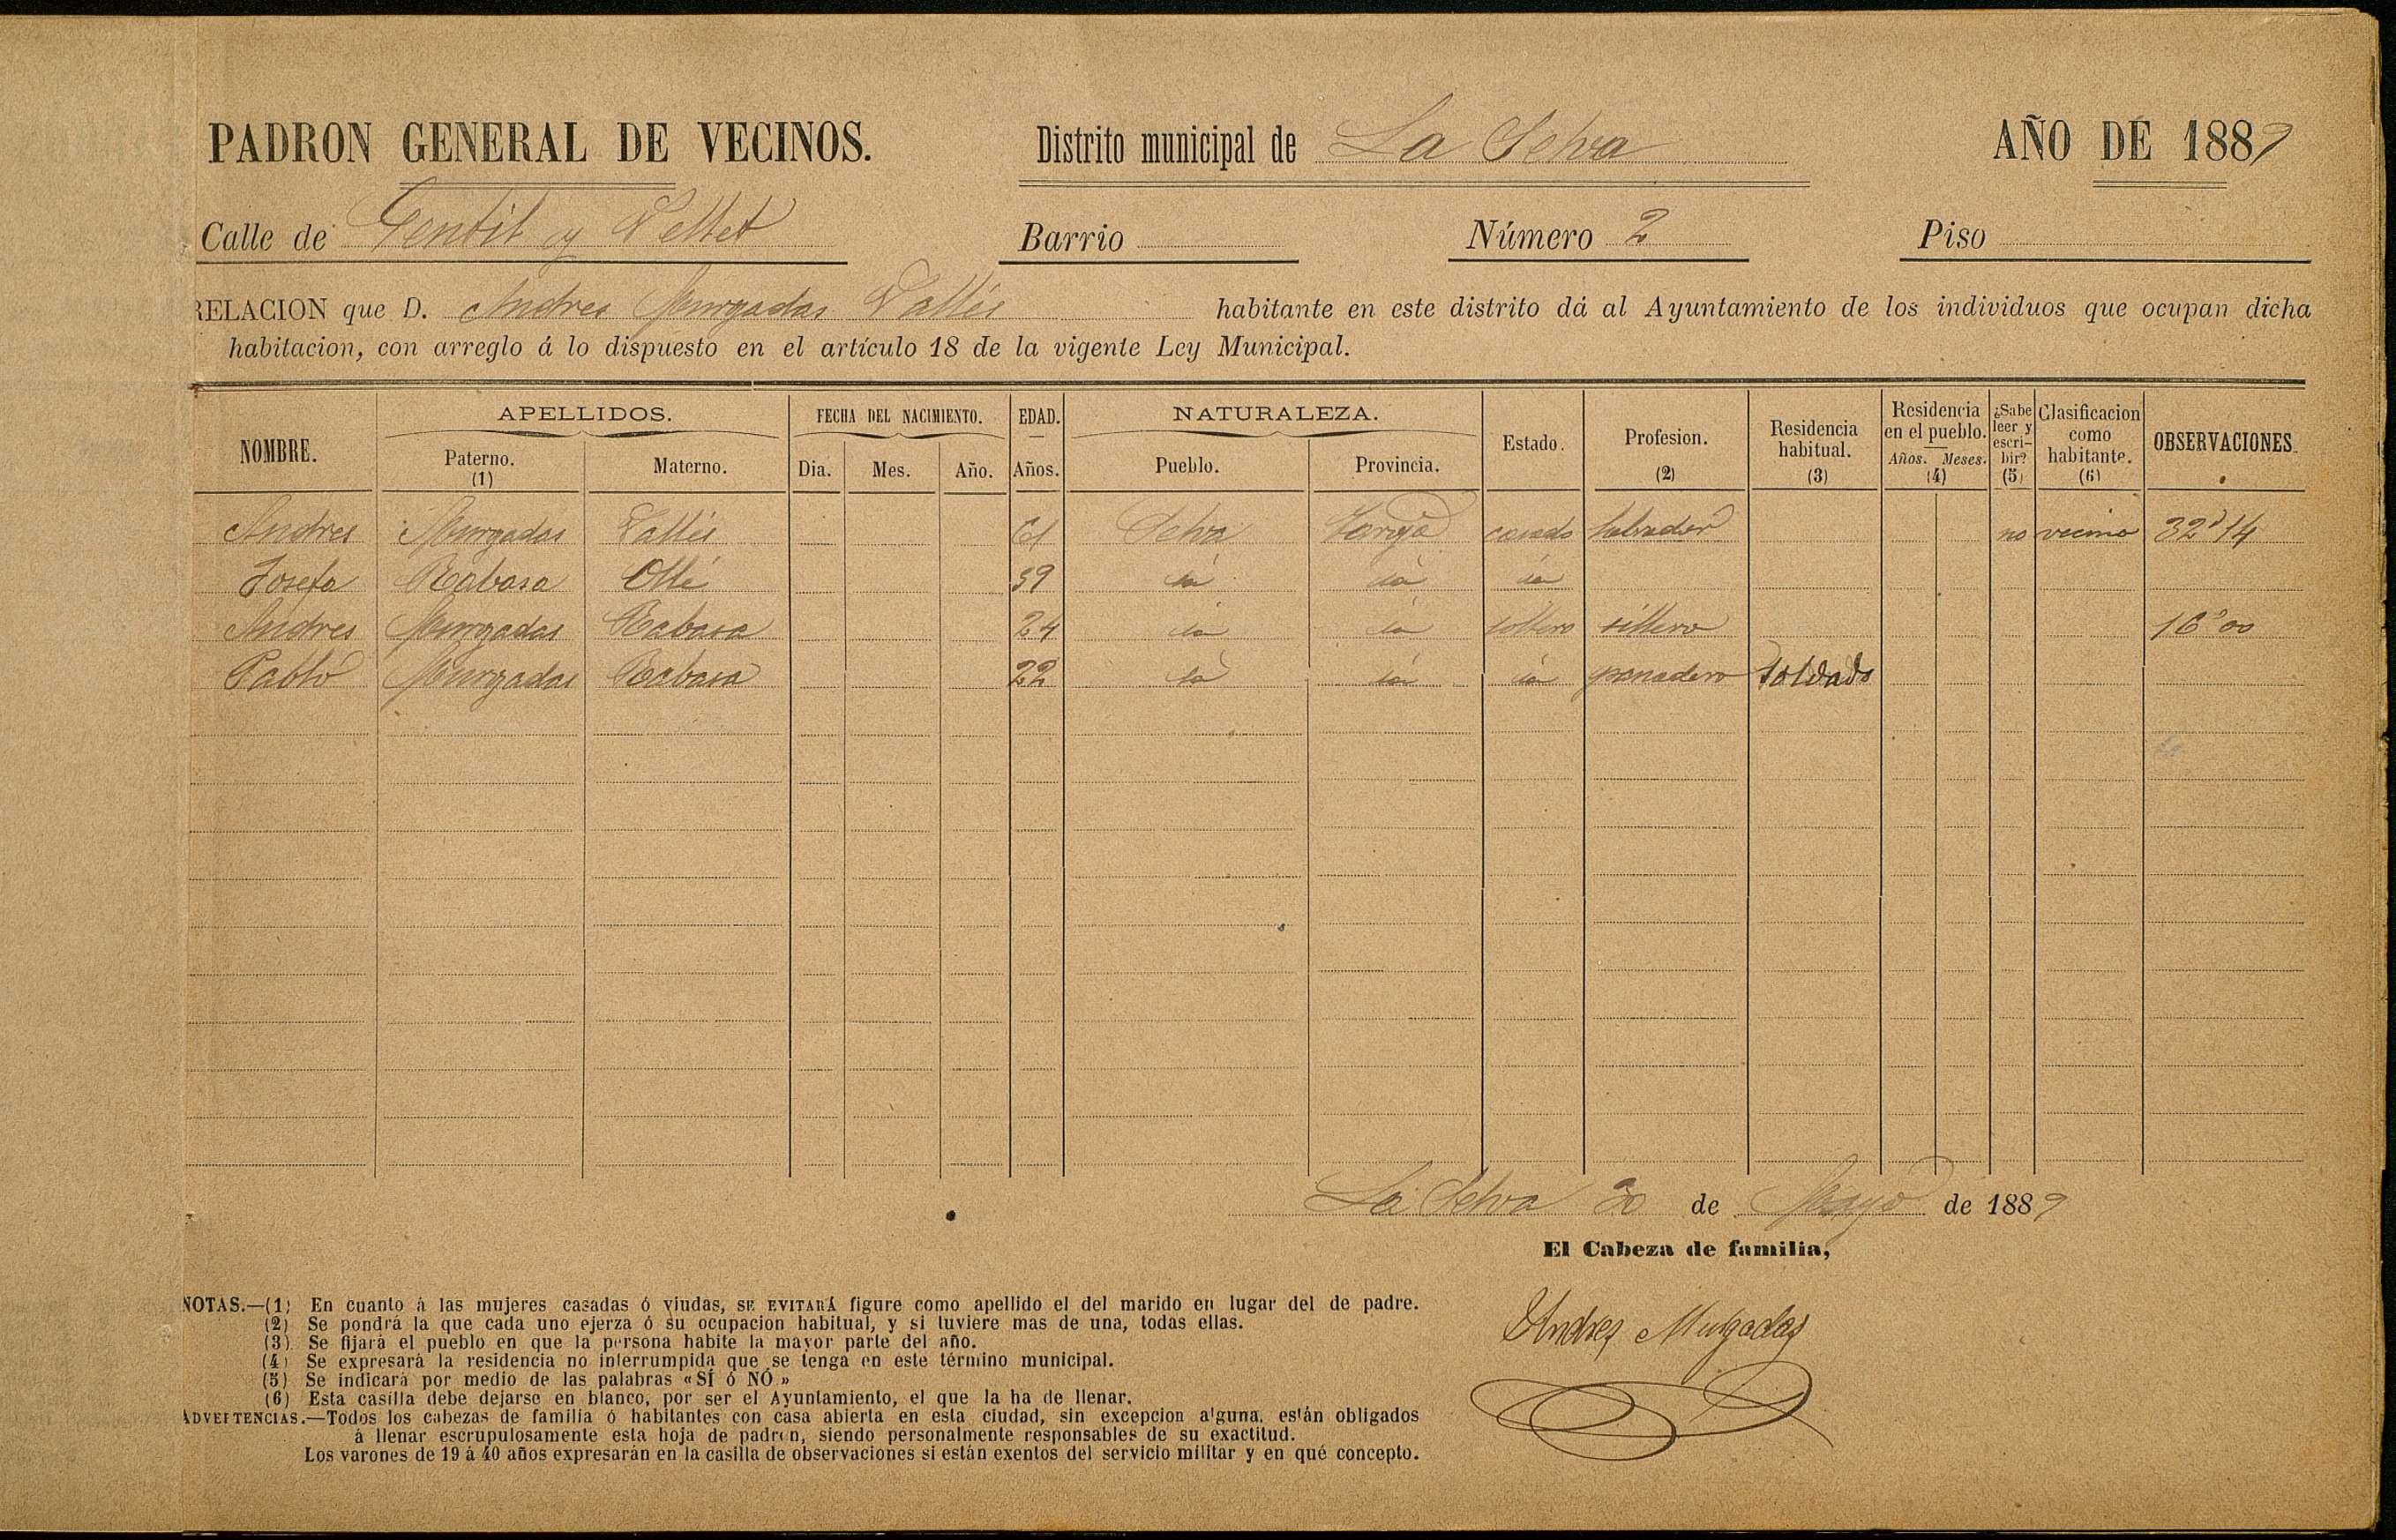 PADRON GENERAL DE VECINOS. Distrito municipal de La Selva AÑO DE 1889
Calle de Gentil y Vellet Barrio Número 2 Piso
RELACION que D. Andres Murgadas Vallés habitante en este distrito dá al Ayuntamiento de los individuos que ocupan dicha
habitacion, con arreglo á lo dispuesto en el artículo 18 de la vigente Ley Municipal.
NOMBRE. APELLIDOS. Paterno. (1) Materno. FECHA DEL NACIMIENTO. Dia. Mes. Año. EDAD. Años. NATURALEZA. Pueblo. Provincia. Estado. Profesion. (2) Residencia habitual. (3) Residencia en el pueblo. Años. Meses. (4) ¿Sabe leer y escribir? (5) Clasificacion como habitante. (6) OBSERVACIONES.
Andres Murgadas Vallés 61 Selva casado labrador no vecino 32'14
Josefa Rabasa Ollé 59 id id id
Andres Murgadas Rabasa 24 id id soltero sillero 16'00
Pablo Murgadas Rabasa 22 id id id panadero soldado
La Selva 20 de Mayo de 1889
El Cabeza de familia,
Andres Murgadas
NOTAS.—(1) En cuanto á las mujeres casadas ó viudas, SE EVITARÁ figure como apellido el del marido en lugar del de padre.
(2) Se pondrá la que cada uno ejerza ó su ocupacion habitual, y si tuviere mas de una, todas ellas.
(3) Se fijará el pueblo en que la persona habite la mayor parte del año.
(4) Se expresará la residencia no interrumpida que se tenga en este término municipal.
(5) Se indicará por medio de las palabras «SÍ ó NÓ»
(6) Esta casilla debe dejarse en blanco, por ser el Ayuntamiento, el que la ha de llenar.
ADVERTENCIAS.—Todos los cabezas de familia ó habitantes con casa abierta en esta ciudad, sin excepcion alguna, están obligados
á llenar escrupulosamente esta hoja de padron, siendo personalmente responsables de su exactitud.
Los varones de 19 á 40 años expresarán en la casilla de observaciones si están exentos del servicio militar y en qué concepto.